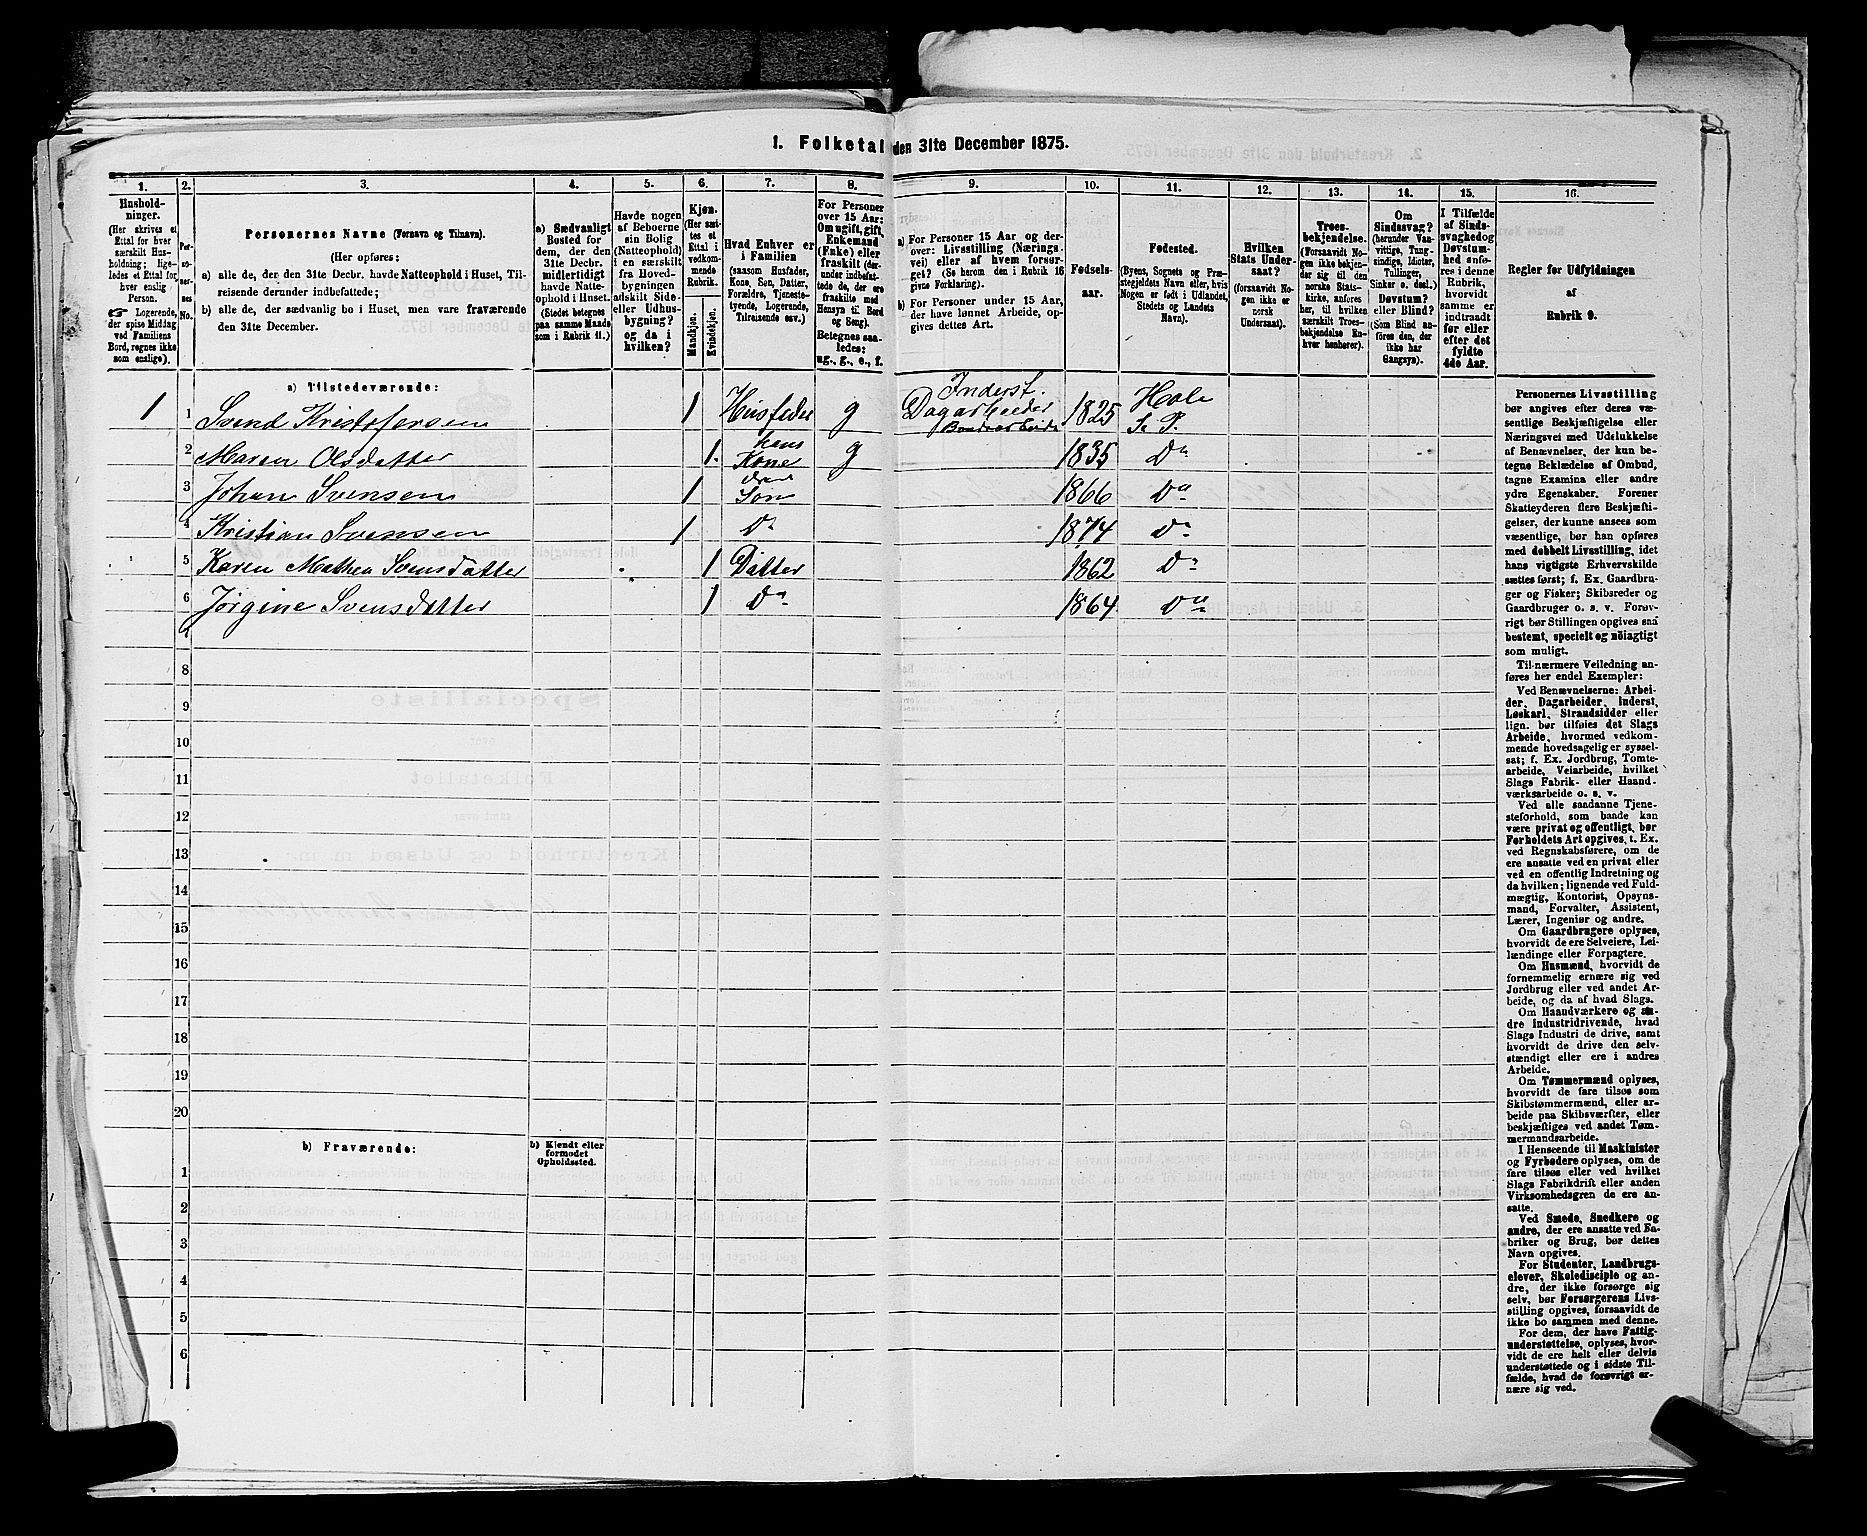 1. Folketal den 31te December 1875.
1. 2. 3. 4. 5. 6. 7. 8. 9. 10. 11. 12. 13. 14. 15. 16.
Hushold-
ninger.
(Her skrives et
Ettal for hver
særskilt Hus-
holdning; lige-
ledes et Ettal for
hver enslig
Person.
☛ Logerende,
der spise Middag
ved Familiens
Bord, regnes ikke
som enslige).
Per-
so-
ner-
nes
No.
Personernes Navne (Fornavn og Tilnavn).
(Her opføres:
a) alle de, der den 31te Decbr. havde Natteophold i Huset, Til-
reisende derunder indbefattede;
b) alle de, der sædvanlig bo i Huset, men vare fraværende
den 31te December.
a) Sædvanligt
Bosted for
dem, der den
31te Decbr.
midlertidigt
havde Natte-
ophold i Huset.
(Stedet betegnes
paa samme Maade
som i Rubrik 11.)
Havde nogen
af Beboerne
sin Bolig
(Natteophold)
i en særskilt
fra Hoved-
bygningen
adskilt Side-
eller Udhus-
bygning?
og da i
hvilken?
Kjøn.
(Her sæt-
tes et
Ettal i
vedkom-
mende
Rubrik.
Mandkjøn.
Kvindekjøn.
Hvad Enhver er
i Familien
(saasom Husfader,
Kone, Søn, Datter,
Forældre, Tjeneste-
tyende, Logerende,
Tilreisende osv.)
For Personer
over 15 Aar:
Om ugift, gift,
Enkemand
(Enke) eller
fraskilt (der-
under indbefat-
tede de, der ere
fraskilte med
Hensyn til Bord
og Seng).
Betegnes saa-
ledes:
ug., g., e., f.
a) For Personer 15 Aar og der-
over: Livsstilling (Nærings-
vei) eller af hvem forsør-
get? (Se herom den i Rubrik 16
givne Forklaring).
b) For Personer under 15 Aar,
der have lønnet Arbeide, op-
gives dettes Art.
Fødsels-
aar.
Fødested.
(Byens, Sognets og Præ-
stegjeldets Navn eller, hvis
Nogen er født i Udlandet,
Stedets og Landets
Navn).
Hvilken
Stats Under-
saat?
(forsaavidt No-
gen ikke er
norsk
Undersaat).
Troes-
bekjendelse.
(Forsaavidt No-
gen ikke bekjen-
der sig til den
norske Stats-
kirke, anføres
her, til hvilken
særskilt Troes-
bekjendelse En-
hver henhører).
Om
Sindssvag?
(herunder Van-
vittige, Tung-
sindige, Idioter,
Tullinger,
Sinker o. desl.)
Døvstum?
eller Blind?
(Som Blind an-
føres den, der
ikke har
Gangsyn).
I Tilfælde
af Sinds-
svaghed og
Døvstum-
hed anfø-
res i denne
Rubrik,
hvorvidt
samme er
indtraadt
før eller
efter det
fyldte
4de Aar.
Regler før Udfyldningen
af
Rubrik 9.
a) Tilstedeværende:
1 1 Svend Kristofersen 1 Husfader g Inderst. Dagarbeider 1825 Hole S. P.
2 Maren Olsdatter 1. hans Kone g 1835 Do
3 Johan Svensen 1 Søn 1866 Do
4 Kristian Svensen 1 Do 1874 Do
5 Karen Mathea Svensdatter 1 Datter 1862 Do
6 Jörgine Svensdatter 1 Do 1864 Do
7
8
9
10
11
12
13
14
15
16
17
18
19
20
b) Fraværende:
b) Kjendt eller
formodet
Opholdssted.
1
2
3
4
5
6
Personernes Livsstilling
bør angives efter deres væ-
sentlige Beskjæftigelse eller
Næringsvei med Udelukkelse
af Benævnelser, der kun be-
tegne Beklædelse af Ombud,
tagne Examina eller andre
ydre Egenskaber. Forener
Skatteyderen flere Beskjæfti-
gelser, der kunne ansees som
væsentlige, bør han opføres
med dobbelt Livsstilling, idet
hans vigtigste Erhvervskilde
sættes først; f. Ex. Gaardbru-
ger og Fisker; Skibsreder og
Gaardbruger o. s. v. Forøv-
rigt bør Stillingen opgives saa
bestemt, specielt og nöiagtigt
som muligt.
Til nærmere Veiledning an-
føres her endel Exempler:
Ved Benævnelserne: Arbei-
der, Dagarbeider, Inderst,
Løskarl, Strandsidder eller
lign. bør tilføies det Slags
Arbeide, hvormed vedkom-
mende hovedsagelig er syssel-
sat; f. Ex. Jordbrug, Tomte-
arbeide, Veiarbeide, hvilket
Slags Fabrik- eller Haand-
værksarbeide o. s. v.
Ved alle saadanne Tjene-
steforhold, som baade kan
være privat og offentligt, bør
Forholdets Art opgives, t. Ex.
ved Regnskabsførere, om de
ere ansatte ved en privat eller
ved en offentlig Indretning og
da hvilken; lignende ved Fuld-
mægtig, Kontorist, Opsyns-
mand, Forvalter, Assistent,
Lærer, Ingeniør og andre.
Om Gaardbrugere oplyses,
hvorvidt de ere Selveiere, Lei-
lændinge eller Forpagtere.
Om Husmænd, hvorvidt de
fornemmelig ernære sig ved
Jordbrug eller ved andet Ar-
beide, og da af hvad Slags.
Om Haandværkere og an-
dre Industridrivende, hvad
Slags Industri de drive, samt
hvorvidt de drive den selv-
stændigt eller ere i andres
Arbeide.
Om Tømmermænd oplyses,
hvorvidt de fare tilsøs som
Skibstømmermænd, eller ar-
beide paa Skibsværfter, eller
beskjæftiges ved andet Tøm-
mermandsarbeide.
I Henseende til Maskinister
og Fyrbødere oplyses, om de
fare tilsøs eller ved hvilket
Slags Fabrikdrift eller anden
Virksomhedsgren de ere an-
satte.
Ved Smede, Snedkere og
andre, der ere ansatte ved Fa-
briker og Brug, bør dettes
Navn opgives.
For Studenter, Landbrugs-
elever, Skoledisciple og an-
dre, der ikke forsørge sig
selv, bør Forsørgerens Livs-
stilling opgives, forsaavidt de
ikke bo sammen med denne.
For dem, der have Fattig-
understøttelse, oplyses, hvor-
vidt de ere helt eller delvis
understøttede og i sidste Til-
fælde, hvad de forøvrigt er-
nære sig ved.